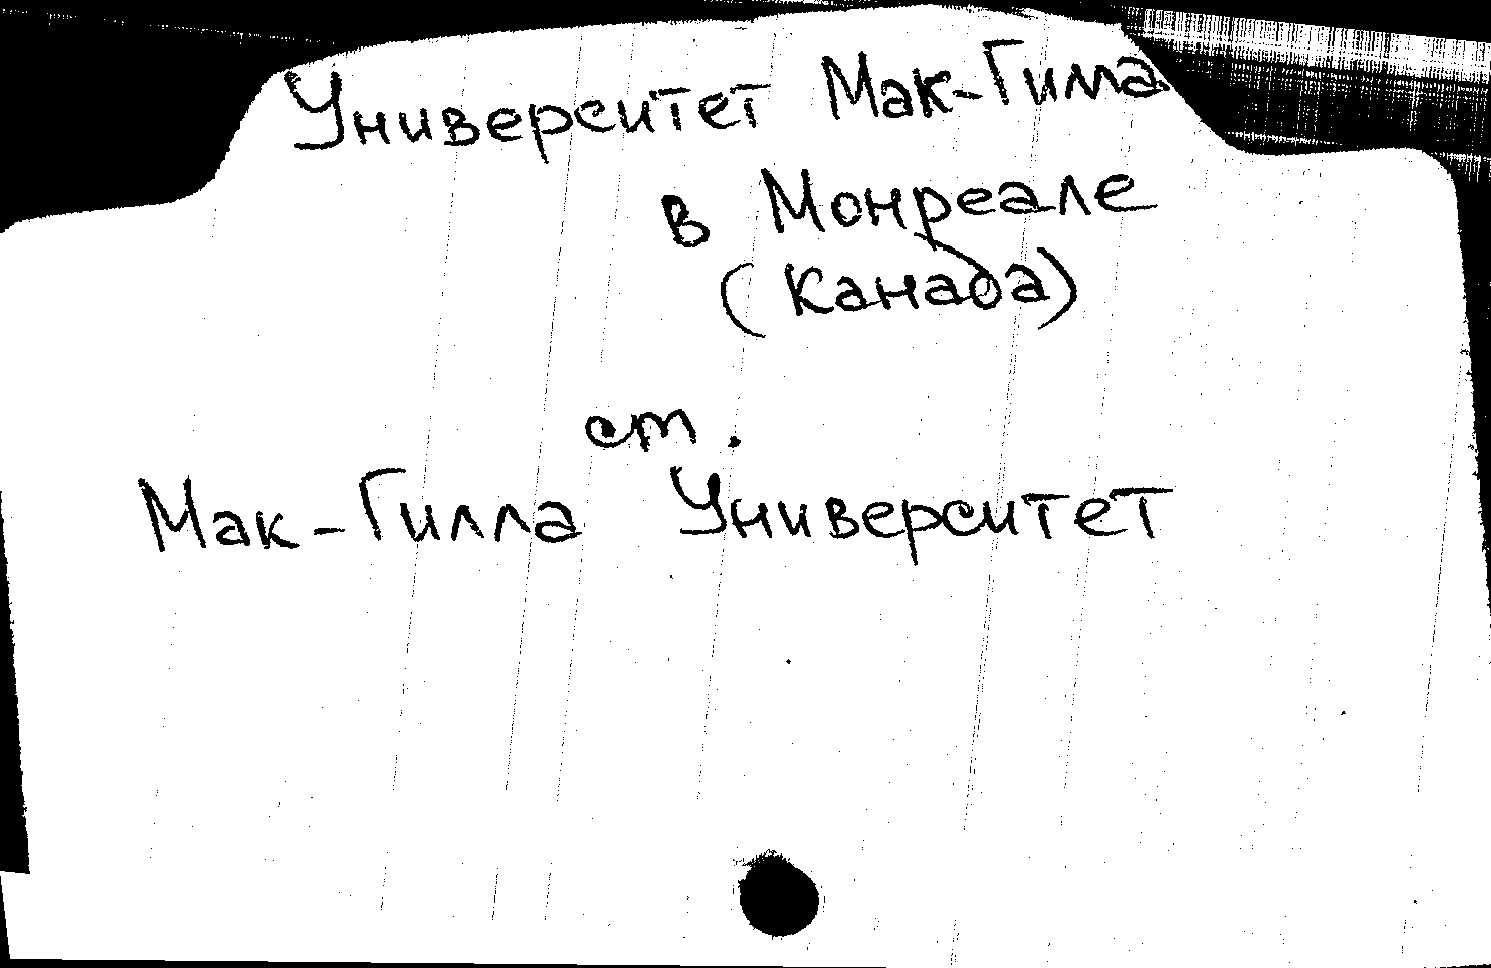 Университет Мак-Гилла
в Монреале
(Канада)
ст.
Мак-Гилла Университет